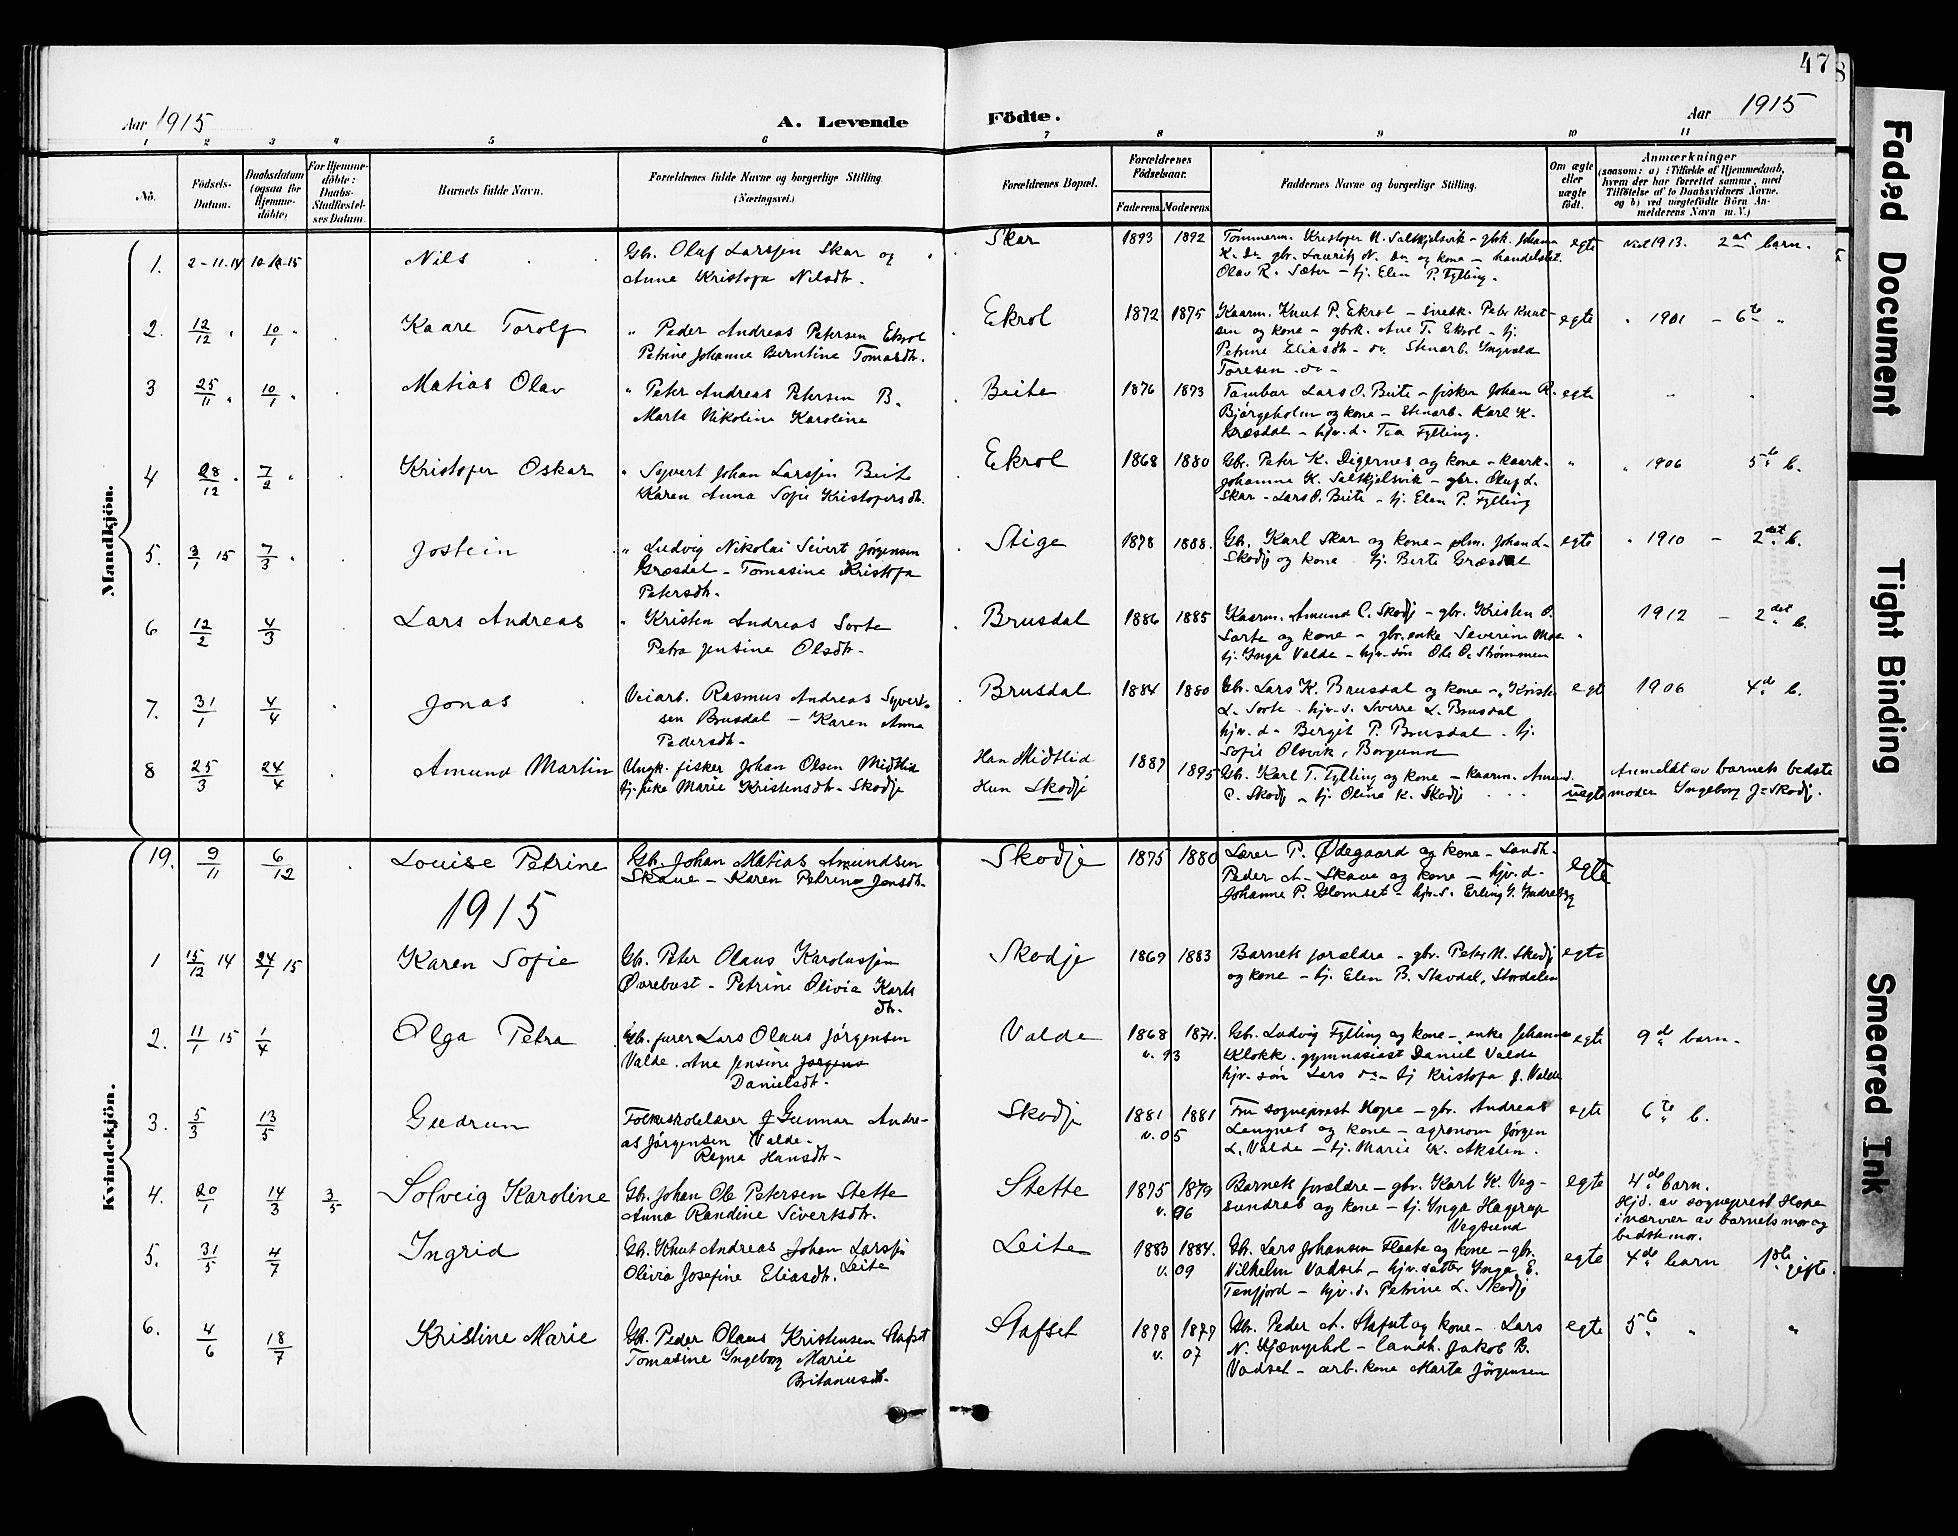 47
8
Aar 1915
A. Levende
Födte.
Aar 1915
1 2 3 4 5 6 7 8 9 10 11
No.
Födsels-Datum.
Daabsdatum (ogsaa for Hjemme-döbte)
For Hjemme-döbte: Daabs-Stadfæstel-ses Datum.
Barnets fulde Navn.
Forældrenes fulde Navne og borgerlige Stilling (Næringsvei.)
Forældrenes Bopæl.
Forældrenes Födselsaar.
Faderens
Moderens
Faddernes Navne og borgerlige Stilling.
Om ægte eller uægte födt.
Anmærkninger
(saasom: a) i Tilfælde af Hjemmedaab, hvem der har forrettet samme, med Tilföielse af to Daabsvidners Navne. og b) ved uægtefödte Börn An-melderens Navn m. V.)
Mandkjön.
1. 2-11-14 Nils
Gbr. Oluf Larssen Skar og
Anna Kristofa Nilsdtr.
Skar 1893 1892
Tømmerm. Kristofer N. Salthjelsvik - gbk. Johann
K. Do gbr. Lauritz N. Do og kone - handelsbet.
Olav R. Sæter - tj. Elen P. Fylling.
egte 1913. 2det barn.
2. 12/12 10/1 Kaare Torolf
" Peder Andreas Petersen Ekrol
Petrine Johanne Berntine Tomasdtr.
Ekrol 1872 1875
Kaarm. Knut P. Ekrol - snedk. Peter Knut-
sen og kone - gbrk. Ane T. Ekrol - tj.
Petrine Eliasdtr - do. Stenarb. Yngvald
Toresen do -
egte " 1901 - 6te "
3 25/11 10/1 Matias Olav
" Peter Andreas Petersen B.
Marte Nikoline Karoline
Beite 1876 1873
Tambur Lars O. Beite - fisker Johan R.
Bjørgeholm og kone - Stenarb. Karl K.
Græsdal - hjv. d. Tea Fylling.
egte " "
4 28/12 7/2 Kristofer Oskar
" Syvert Johan Larssen Beite
Karen Anna Sofie Kristofersdtr.
Ekrol 1868 1880
Gbr. Peter K. Digernes og kone - kaark.
Johanne K. Salthjelsvik - gbr. Oluf L.
Skar - Lars O. Beite - tj. Elen P. Fylling
" " 1906 5te b.
5. 3/1 15 7/3 Jostein
" Ludvig Nikolai Sivert Jørgensen
Græsdal - Tomasine Kristofa
Petersdtr.
Stige 1878 1888.
Gbr. Karl Skar og kone - plm. Johan L.
Skodj og kone. tj. Berte Græsdal
egte " 1910 - 2det b.
6 12/2 4/3 Lars Andreas
" Kristen Andreas Sorte
Petra Jensine Olsdtr.
Brusdal 1886 1885
Kaarm. Amund C. Skodj - gbr. Kristen O.
Sorte og kone - gbr. enke Severine Moe
tj. Ynga Valde - hjv. søn Ole O. Strømmen
" 1912 - 2det b.
7. 31/1 4/4 Jonas
Veiarb. Rasmus Andreas Syvert-
sen Brusdal - Karen Anna
Pedersdtr.
Brusdal 1884 1880
Gbr. Lars K. Brusdal og kone - " Kristen
L. Sorte - hjv. s. Sverre L. Brusdal
hjv. d. Bergit P. Brusdal - tj.
Sofie Olsvik, Borgund
egt 1906 4de b.
8 25/3 24/4 Amund Martin
Ungk. fisker Johan Olsen Midtlid
tj. pike Marie Kristensdtr. Skodje
Han Midtlid
Hun Skodje
1887 1895
Gbr. Karl T. Fylling og kone - kaarm. Amund
C. Skodj - tj. Oline K. Skodj
uegte
Anmeldt av barnets bedste
moder Yngeborg J. Skodj.
Kvindekjön.
19. 9/11 6/12 Louise Petrine
Gbr. Johan Matias Amundsen
Skaue - Karen Petrine Jensdtr.
Skodje 1875 1880
Lærer P. Ødegaard og kone - Landh.
Peder A. Skaue og kone - hjv. d.
Johanne P. Glomset - hjv. s. Erling Y. Yndreberg
egte
1915
1 15/12 14 24/1 15 Karen Sofie
Gbr. Peter Olaus Karolussen
Øvrebust - Petrine Olivia Karls
dtr.
Skodje 1869 1883
Barnets forældre - gbr. Peter N. Skodj
og kone - tj. Elen B. Stavdal, Stordalen
egte
2. 11/1 15 1/4 Olga Petra
Gbr. furer Lars Olaus Jørgensen
Valde. Ane Jensine Jørgens
Danielsdtr.
Valde 1868 1871.
v. 93
Gbr. Ludvig Fylling og kone - enke Johanne
Klokk. gymnasiast Daniel Valde
hjv. søn Lars do - tj Kristofa J. Valde
egte 9de barn.
3. 5/3 13/5 Gudrun
Folkeskolelærer J Gunnar Andre-
as Jørgensen Valde.
Ragna Hansdtr.
Skodj 1881 1881
v. 05
Fru sogneprest Hope - gbr. Andreas
Langnes og kone - agronom Jørgen
L. Valde - tj. Marie K. Akslen.
egte 6te b.
4. 20/1 14/3 3/5 Solveig Karoline
Gbr. Johan Ole Petersen Stette
Anna Randine Sivertsdtr.
Stette 1875 1879
v. 96
Barnets forældre - gbr. Karl K. Veg-
sundrab og kone - tj. Ynga Hagerup
Vegsund
egte 4de barn.
Hjd. av sogneprest Hope
i nærvær av barnets mor og
bedstemor.
5. 31/5 4/7 Ingrid
Gbr. Knut Andreas Johan Larssen
Olivia Josefine Eliasdtr. Leite
Leite 1883 1884.
v. 09
Gbr. Lars Johansen Flaate og kone - gbr.
Vilhelm Vadset - hjv. datter Ynga E.
Tenfjord - hjv. d. Petrine L. Skodj
egte 4de barn 1ste egte.
6. 4/6 18/7 Kristine Marie
Gbr. Peder Olaus Kristensen Stafset
Tomasine Yngeborg Marie
Britanusdtr.
Stafset 1878 1879
v. 07
Gbr. Peder A. Stafset og kone - Lars
N. Kjemphol - landh. Jakob B.
Vadset - arb. kone Marta Jørgensen
egte 5te " "
Faded Document
Tight Binding
Smeared Ink